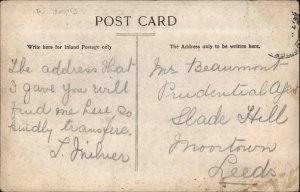 POST CARD
Write here for Inland Postage only
The Address only to be written here.
The address that
I gave you will
find me here so
kindly transfer.
Mr Beaumont
Prudential Agt
Slade Hill
Moortown
Leeds